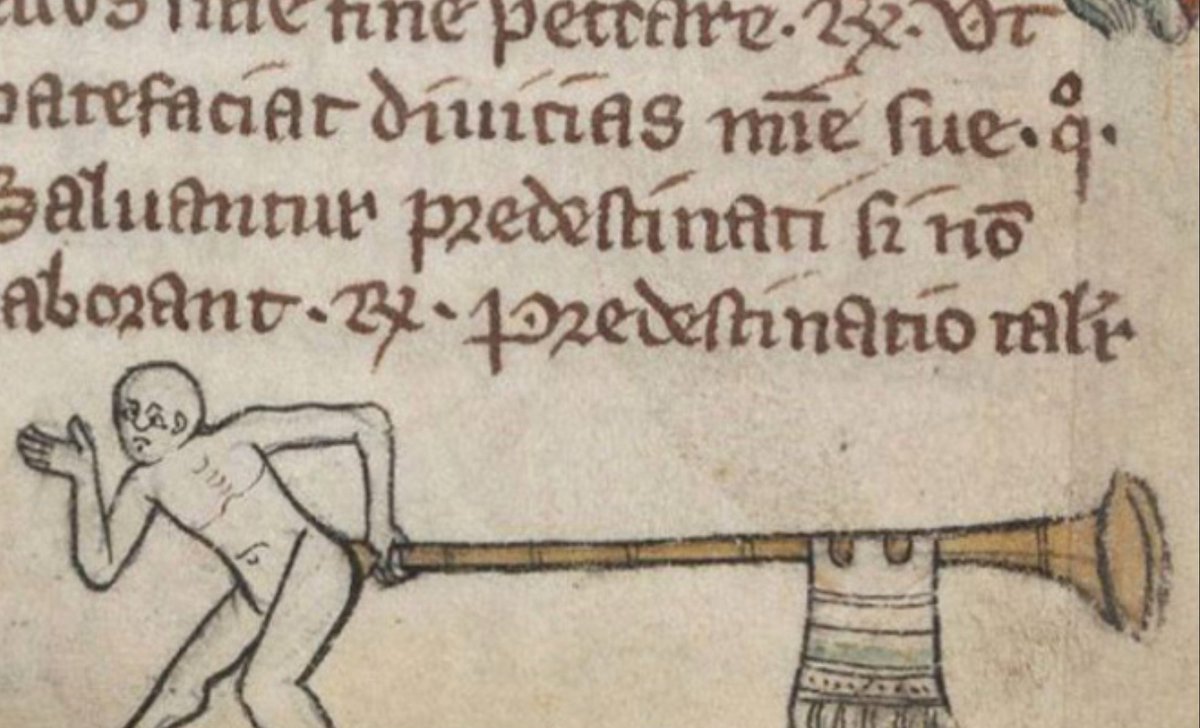 sine fine peccare. ℞. Ut
patefaciat diuicias mīe sue. q̊.
Saluantur predestinati si nō
aborant. ℞. Predestinatio